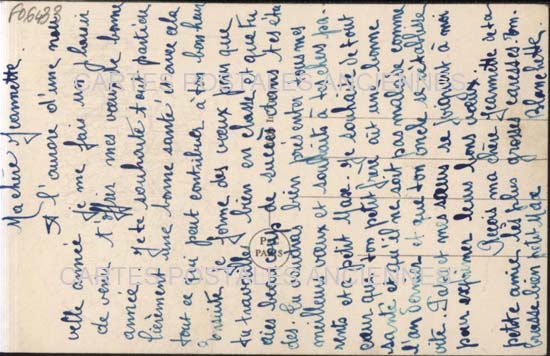 F06483
Ma chère Jeannette.
A l'aurore d'une nou-
velle année je me fais un plaisir
de venir t'offrir mes vœux de bonne
année. Je te souhaite tout particu-
lièrement une bonne santé et avec cela
tout ce qui peut contribuer à ton bonheur
Ensuite je forme des vœux pour que
tu travailles bien en classe et que tu
aies beaucoup de succès dans tes étu-
des. Tu voudras bien présenter tous mes
meilleurs vœux et souhaits à tes chers pa-
rents et à petit Max. Je souhaite de tout
cœur que ton petit frère ait une bonne
santé et qu'il ne soit pas malade comme
l'an dernier et que ton oncle se rétablisse
vite. Papa et mes sœurs se joignent à moi
pour exprimer leurs bons vœux.
Reçois ma chère Jeannette de ta
petite amie les plus grosses caresses. Em-
brasse bien petit Max
Blanchette
PARIS
CARTES POSTALES ANCIENNES
CARTES POSTALES ANCIENNES